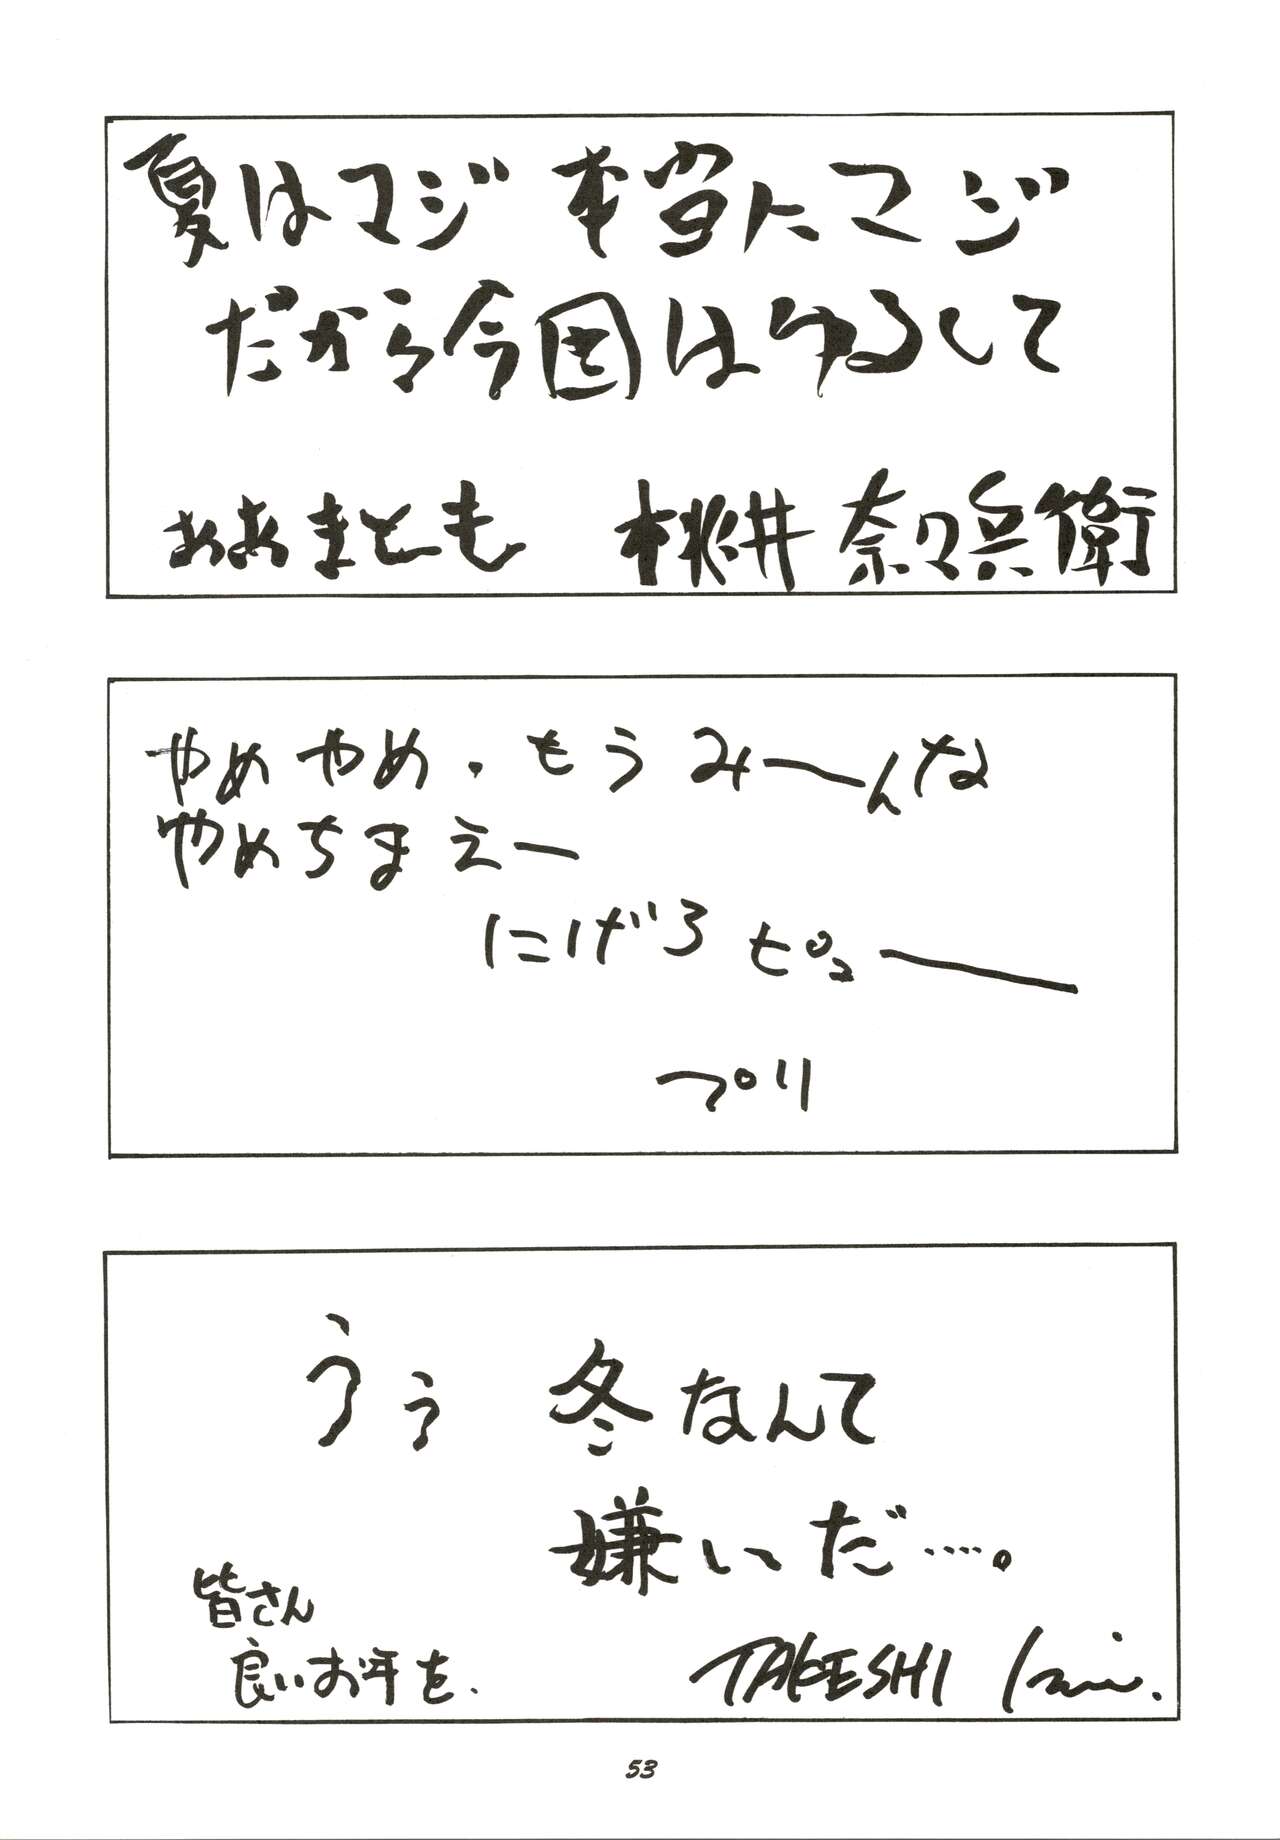 夏はマジ 本当にマジ
だから今回はゆるして
ああまとも 桃井 奈々兵衛
やめやめ.もうみーんな
やめちまえー
にげろ ピューー
プリ
うぅ 冬なんて
嫌いだ……。
皆さん
良いお年を.
TAKESHI
53